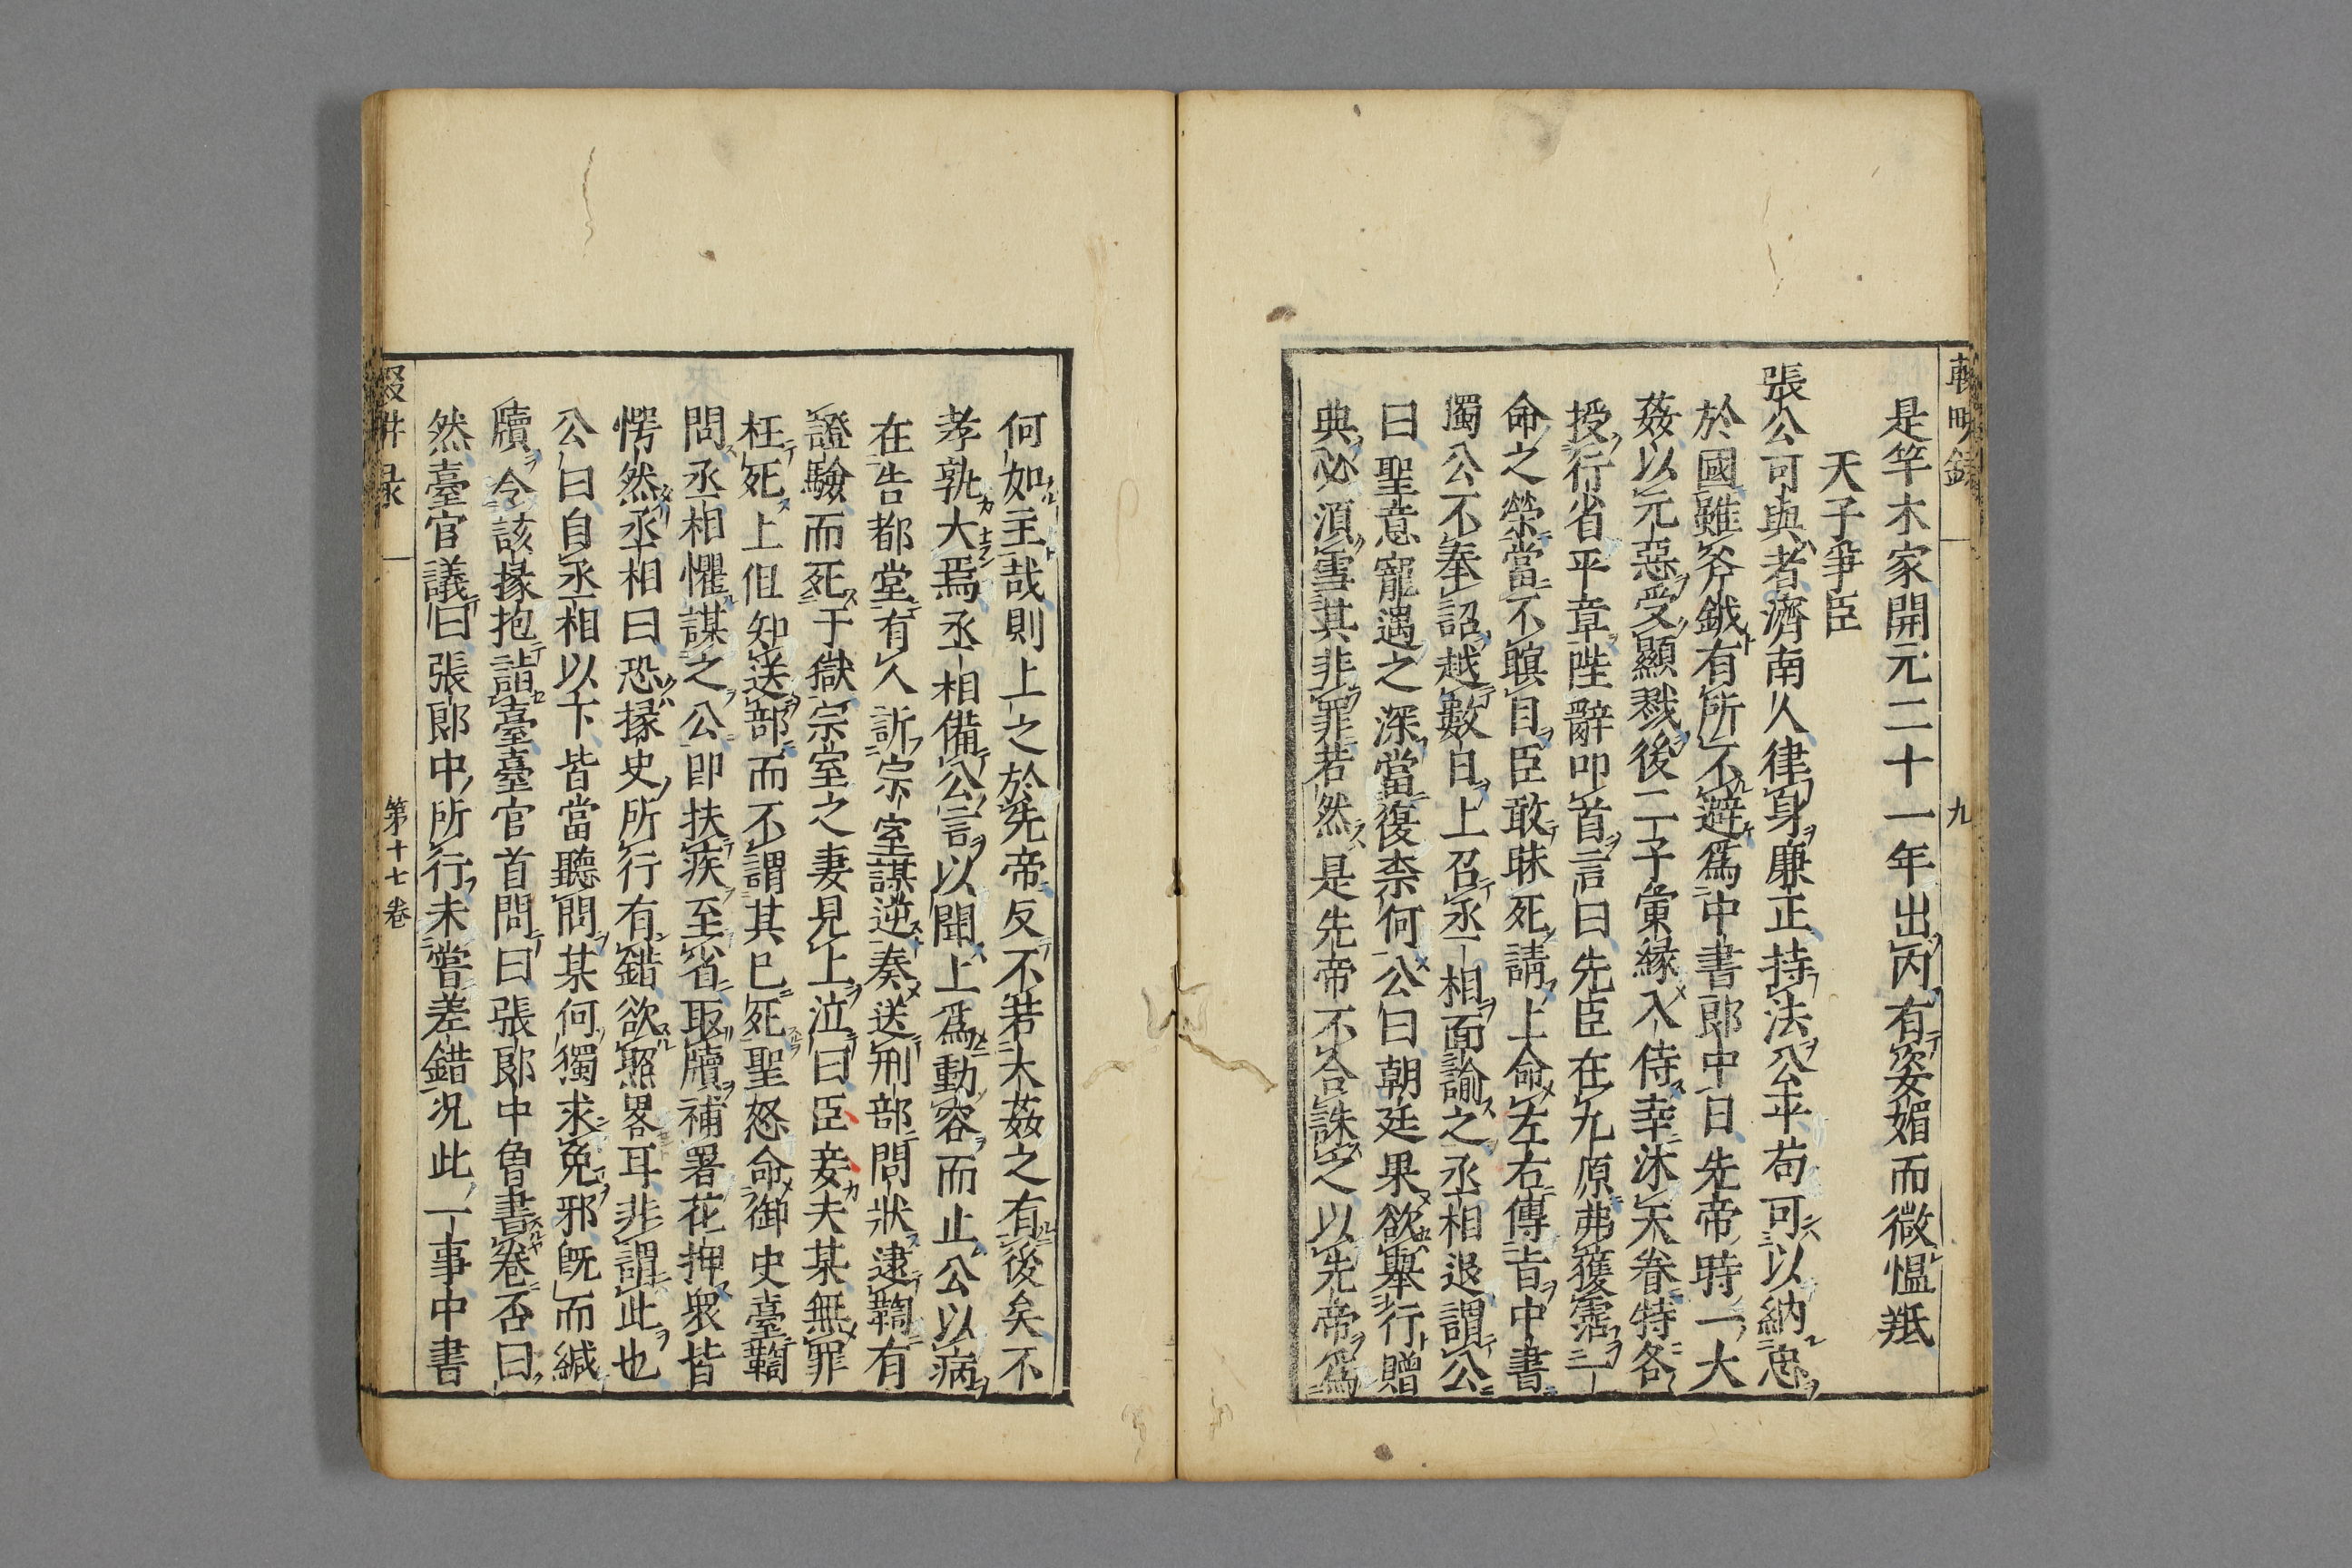 輟畊録
九
是竿木家開元二十一年出丙有姿媚而微慍羝
天子爭臣
張公可與者濟南人律身廉正持法公平苟可以納忠
於國雖斧鉞有所不避爲中書郎中日先帝時一大
姦以元惡受顯戮後二子夤縁入侍幸沐天眷特各
授行省平章陛辭叩首言曰先臣在九原弗獲霑一
命之榮當不瞑目臣敢昧死請上命左右傳旨中書
獨公不奉詔越數日上召丞相面諭之丞相退謂公
曰聖意寵遇之深當復柰何公曰朝廷果欲舉行贈
典必湏雪其非罪若然是先帝不合誅之以先帝爲
何如主哉則上之於先帝反不若大姦之有後矣不
孝孰大焉丞相備公言以聞上爲動容而止公以病
在告都堂有人訴宗室謀逆奏送刑部問狀逮鞫有
證驗而死于獄宗室之妻見上泣曰臣妾夫某無罪
枉死上但知送部而不謂其已死聖怒命御史臺鞫
問丞相懼謀之公卽扶疾至省取牘補署花押衆皆
愕然丞相曰恐掾史所行有錯欲照畧耳非謂此也
公曰自丞相以下皆當聽問某何獨求免邪旣而緘
牘令該掾抱詣臺臺官首問曰張郎中魯書卷否曰
然臺官議曰張郎中所行未嘗差錯况此一事中書
輟畊录
第十七卷